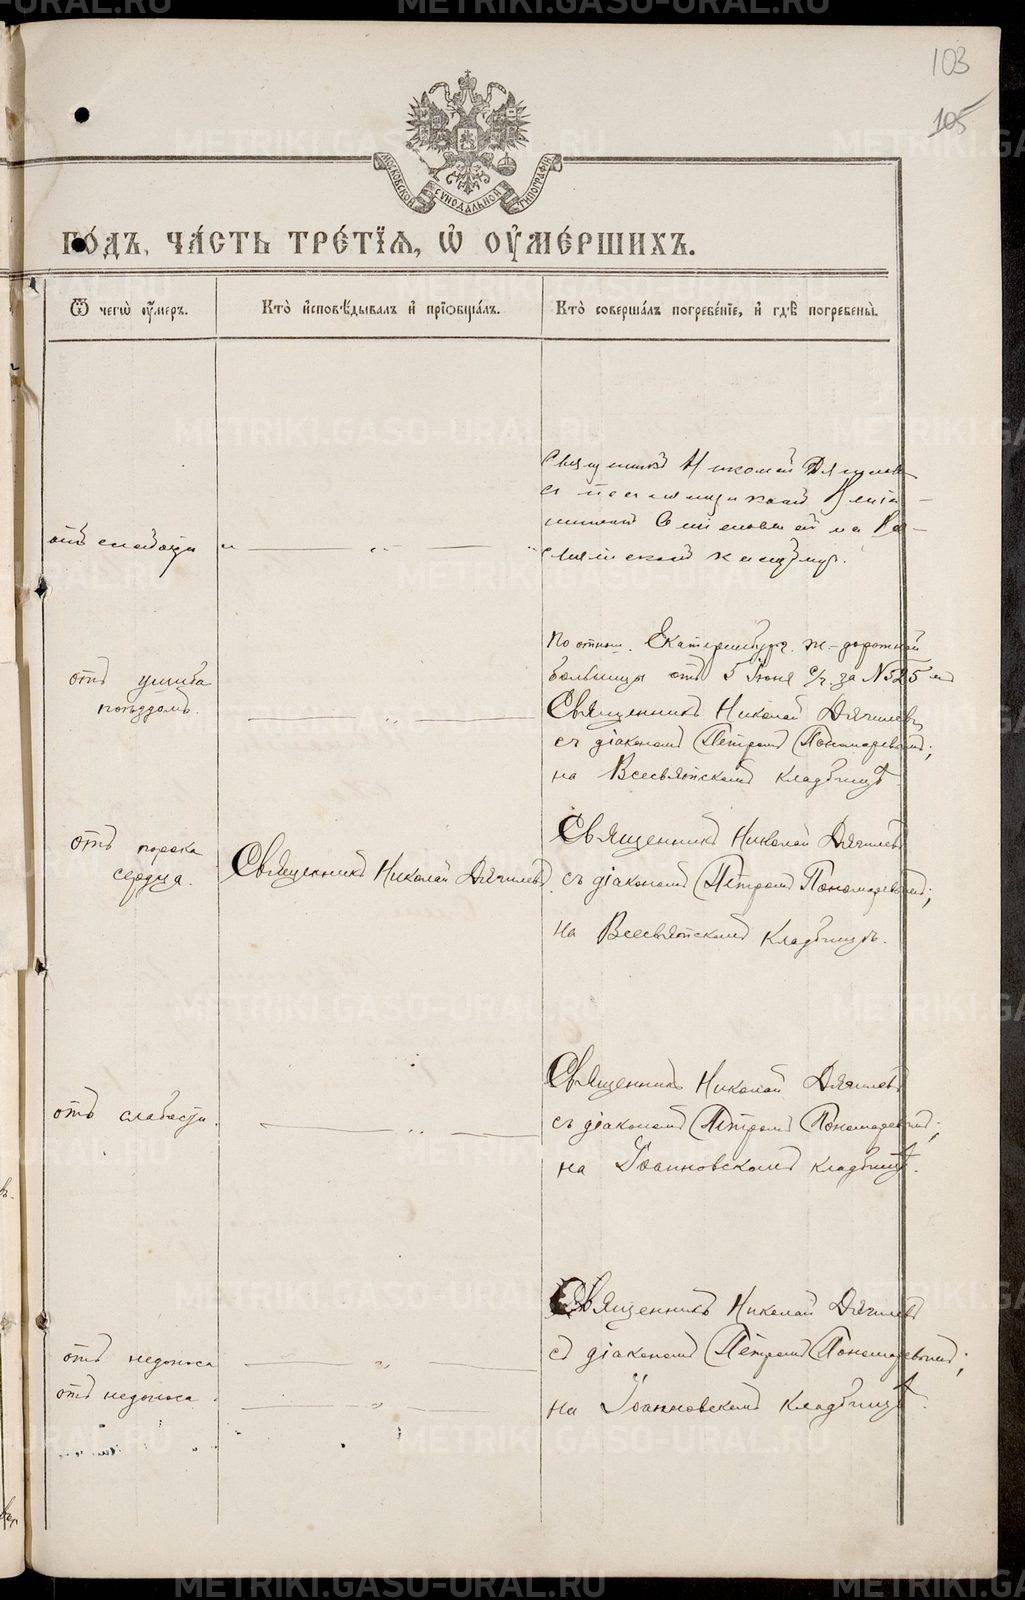 103
105
МОСКОВСКОЙ СѴНОДАЛЬНОЙ ТИПОГРАФІИ
ГО́ДЪ, ЧА́СТЬ ТРЕ́ТЇѦ, Ѡ҆ ОУ҆МЕ́РШИХЪ.
Ѿ чегѡ̀ оу҆́меръ.
Кто̀ и҆сповѣ́дывалъ и҆ прїѡбща́лъ.
Кто̀ соверша́лъ погребе́нїе, и҆ гдѣ̀ погребены̀.
Священникъ Николай Дягилевъ
съ псаломщикомъ
на
отъ слабости
отъ ушиба
поѣздомъ.
По отнош. Екатеринбург. ж-дорожной
больницы отъ 5 Іюня с/г. за № 525
Священникъ Николай Дягилевъ
съ діакономъ Петромъ Пономаревымъ;
на Всесвятскомъ кладбищѣ
отъ порока
сердца.
Священникъ Николай Дягилевъ.
Священникъ Николай Дягилевъ
съ діакономъ Петромъ Пономаревымъ;
на Всесвятскомъ кладбищѣ.
отъ слабости.
Священникъ Николай Дягилевъ
съ діакономъ Петромъ Пономаревымъ;
на Іоанновскомъ кладбищѣ.
отъ недоноса
отъ недоноса.
Священникъ Николай Дягилевъ
съ діакономъ Петромъ Пономаревымъ;
на Іоанновскомъ кладбищѣ.
METRIKI.GASO-URAL.RU